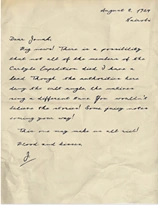 August 3, 1924
Dear Jonah,
Big news! There is a possibility
that not all of the members of the
Carlyle Expedition died. I have a
lead. Though the authorities here
deny the cult angle, the natives
sing a different tune. You wouldn't
believe the stories! Some juicy notes
coming your way!
This one may make us all rich!
Blood and kisses,
J